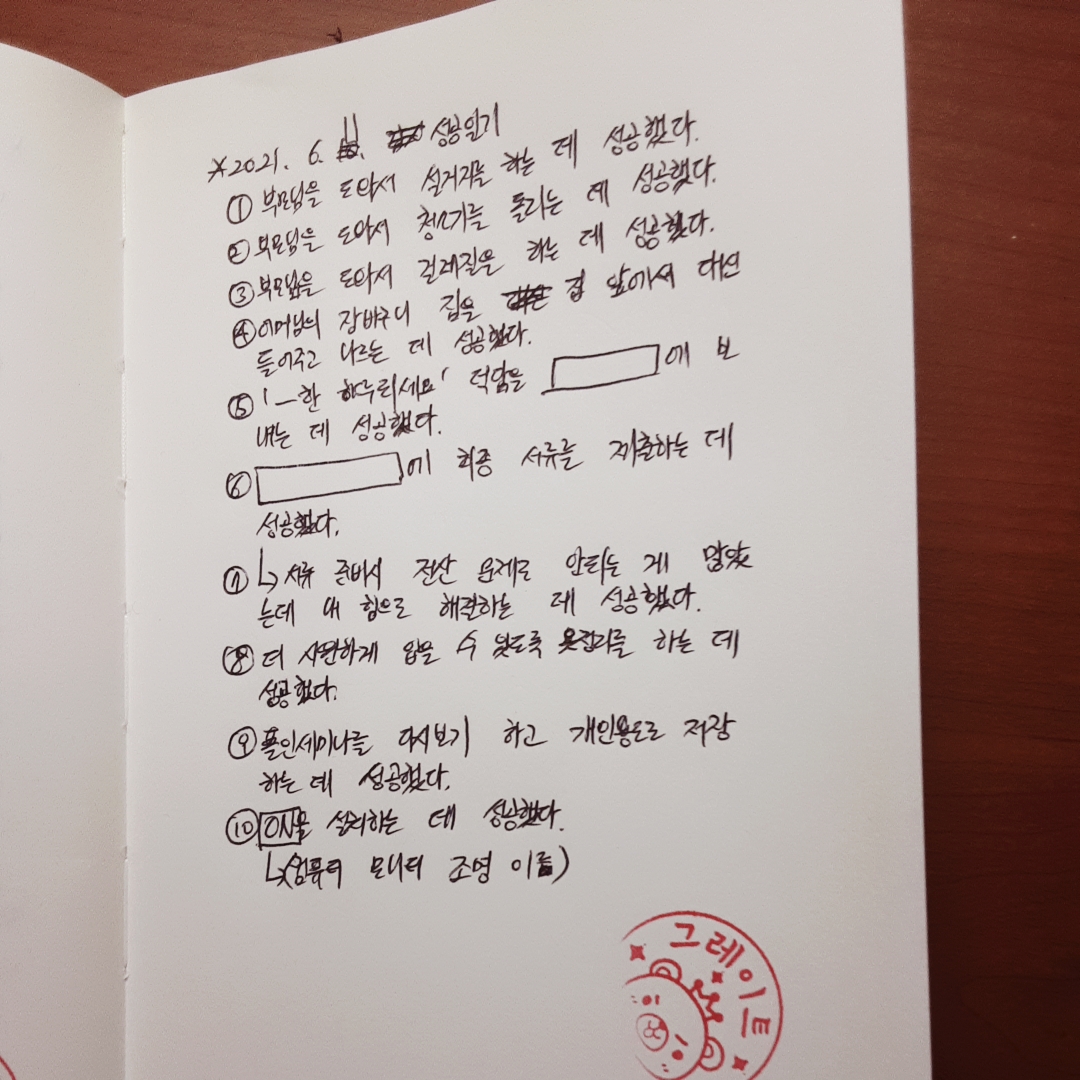 *2021. 6. 11. 성공일기
① 부모님을 도와서 설거지를 하는 데 성공했다.
② 부모님을 도와서 청소기를 돌리는 데 성공했다.
③ 부모님을 도와서 걸레질을 하는 데 성공했다.
④ 어머님의 장바구니 짐을 집 앞에서 대신
들어주고 나르는 데 성공했다.
⑤ '_한 하루되세요' 덕담을 에 보
내는 데 성공했다.
⑥ 에 최종 서류를 제출하는 데
성공했다.
⑦ ↳서류 준비시 전산 문제로 안되는 게 많았
는데 내 힘으로 해결하는 데 성공했다.
⑧ 더 시원하게 입을 수 있도록 옷정리를 하는 데
성공했다.
⑨ 폴인세미나를 다시보기 하고 개인용도로 저장
하는 데 성공했다.
⑩ ON을 설치하는 데 성공했다.
↳(컴퓨터 모니터 조명 이름)
그레이트